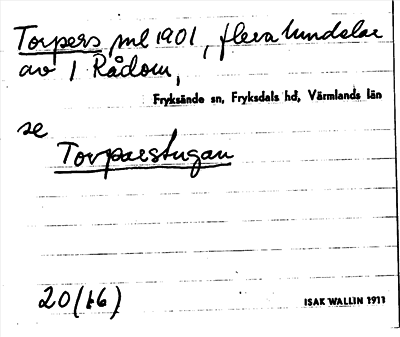 Torpers, ml 1901, flera lundelar
av 1 Rådom,
Fryksände sn, Fryksdals hd, Värmlands län
se
Torparstugan
20 (16)
ISAK WALLIN 1911